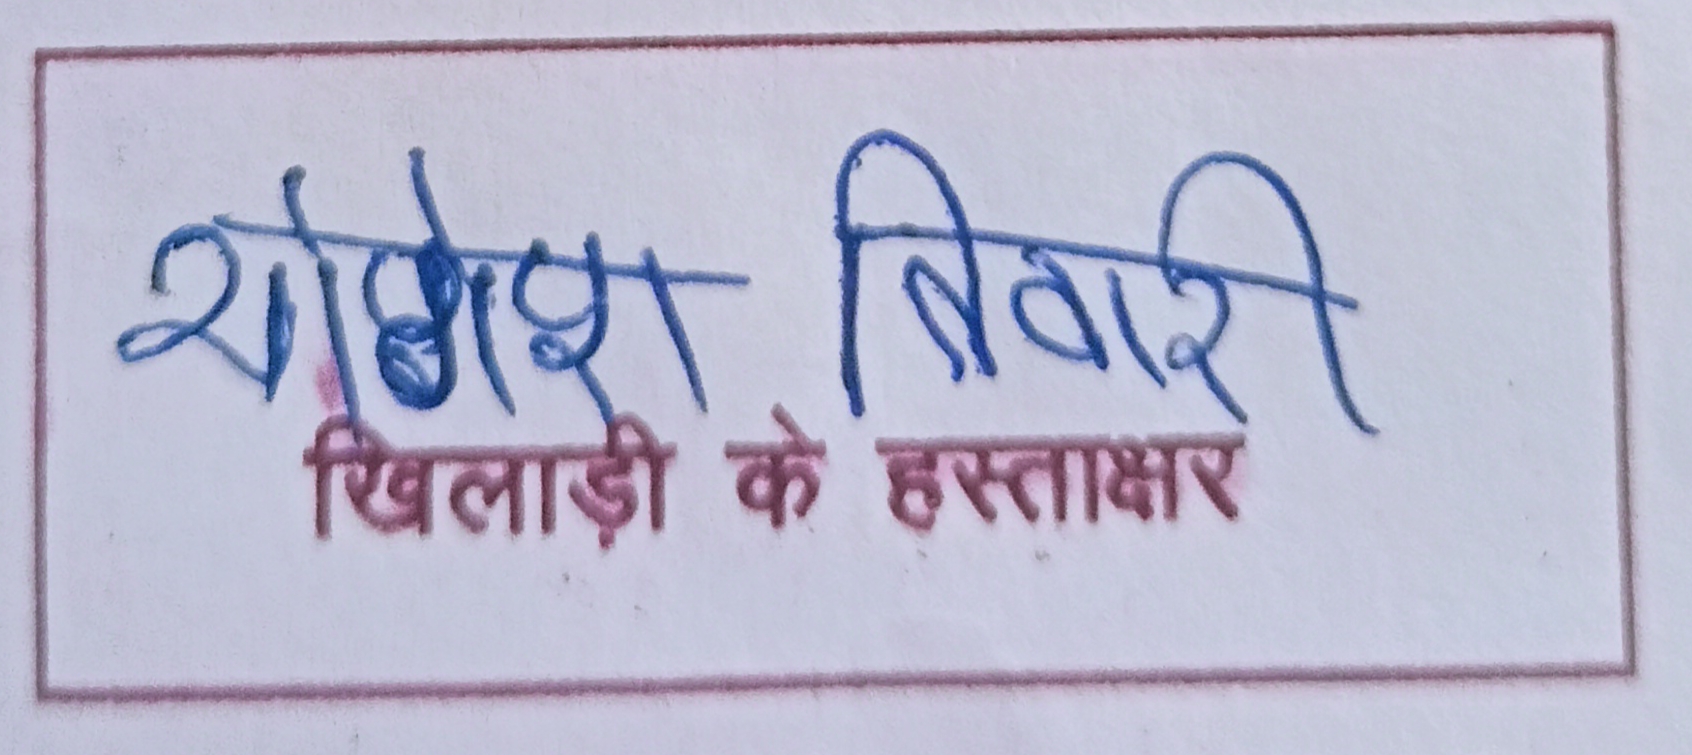 योगेश तिवारी
खिलाड़ी के हस्ताक्षर